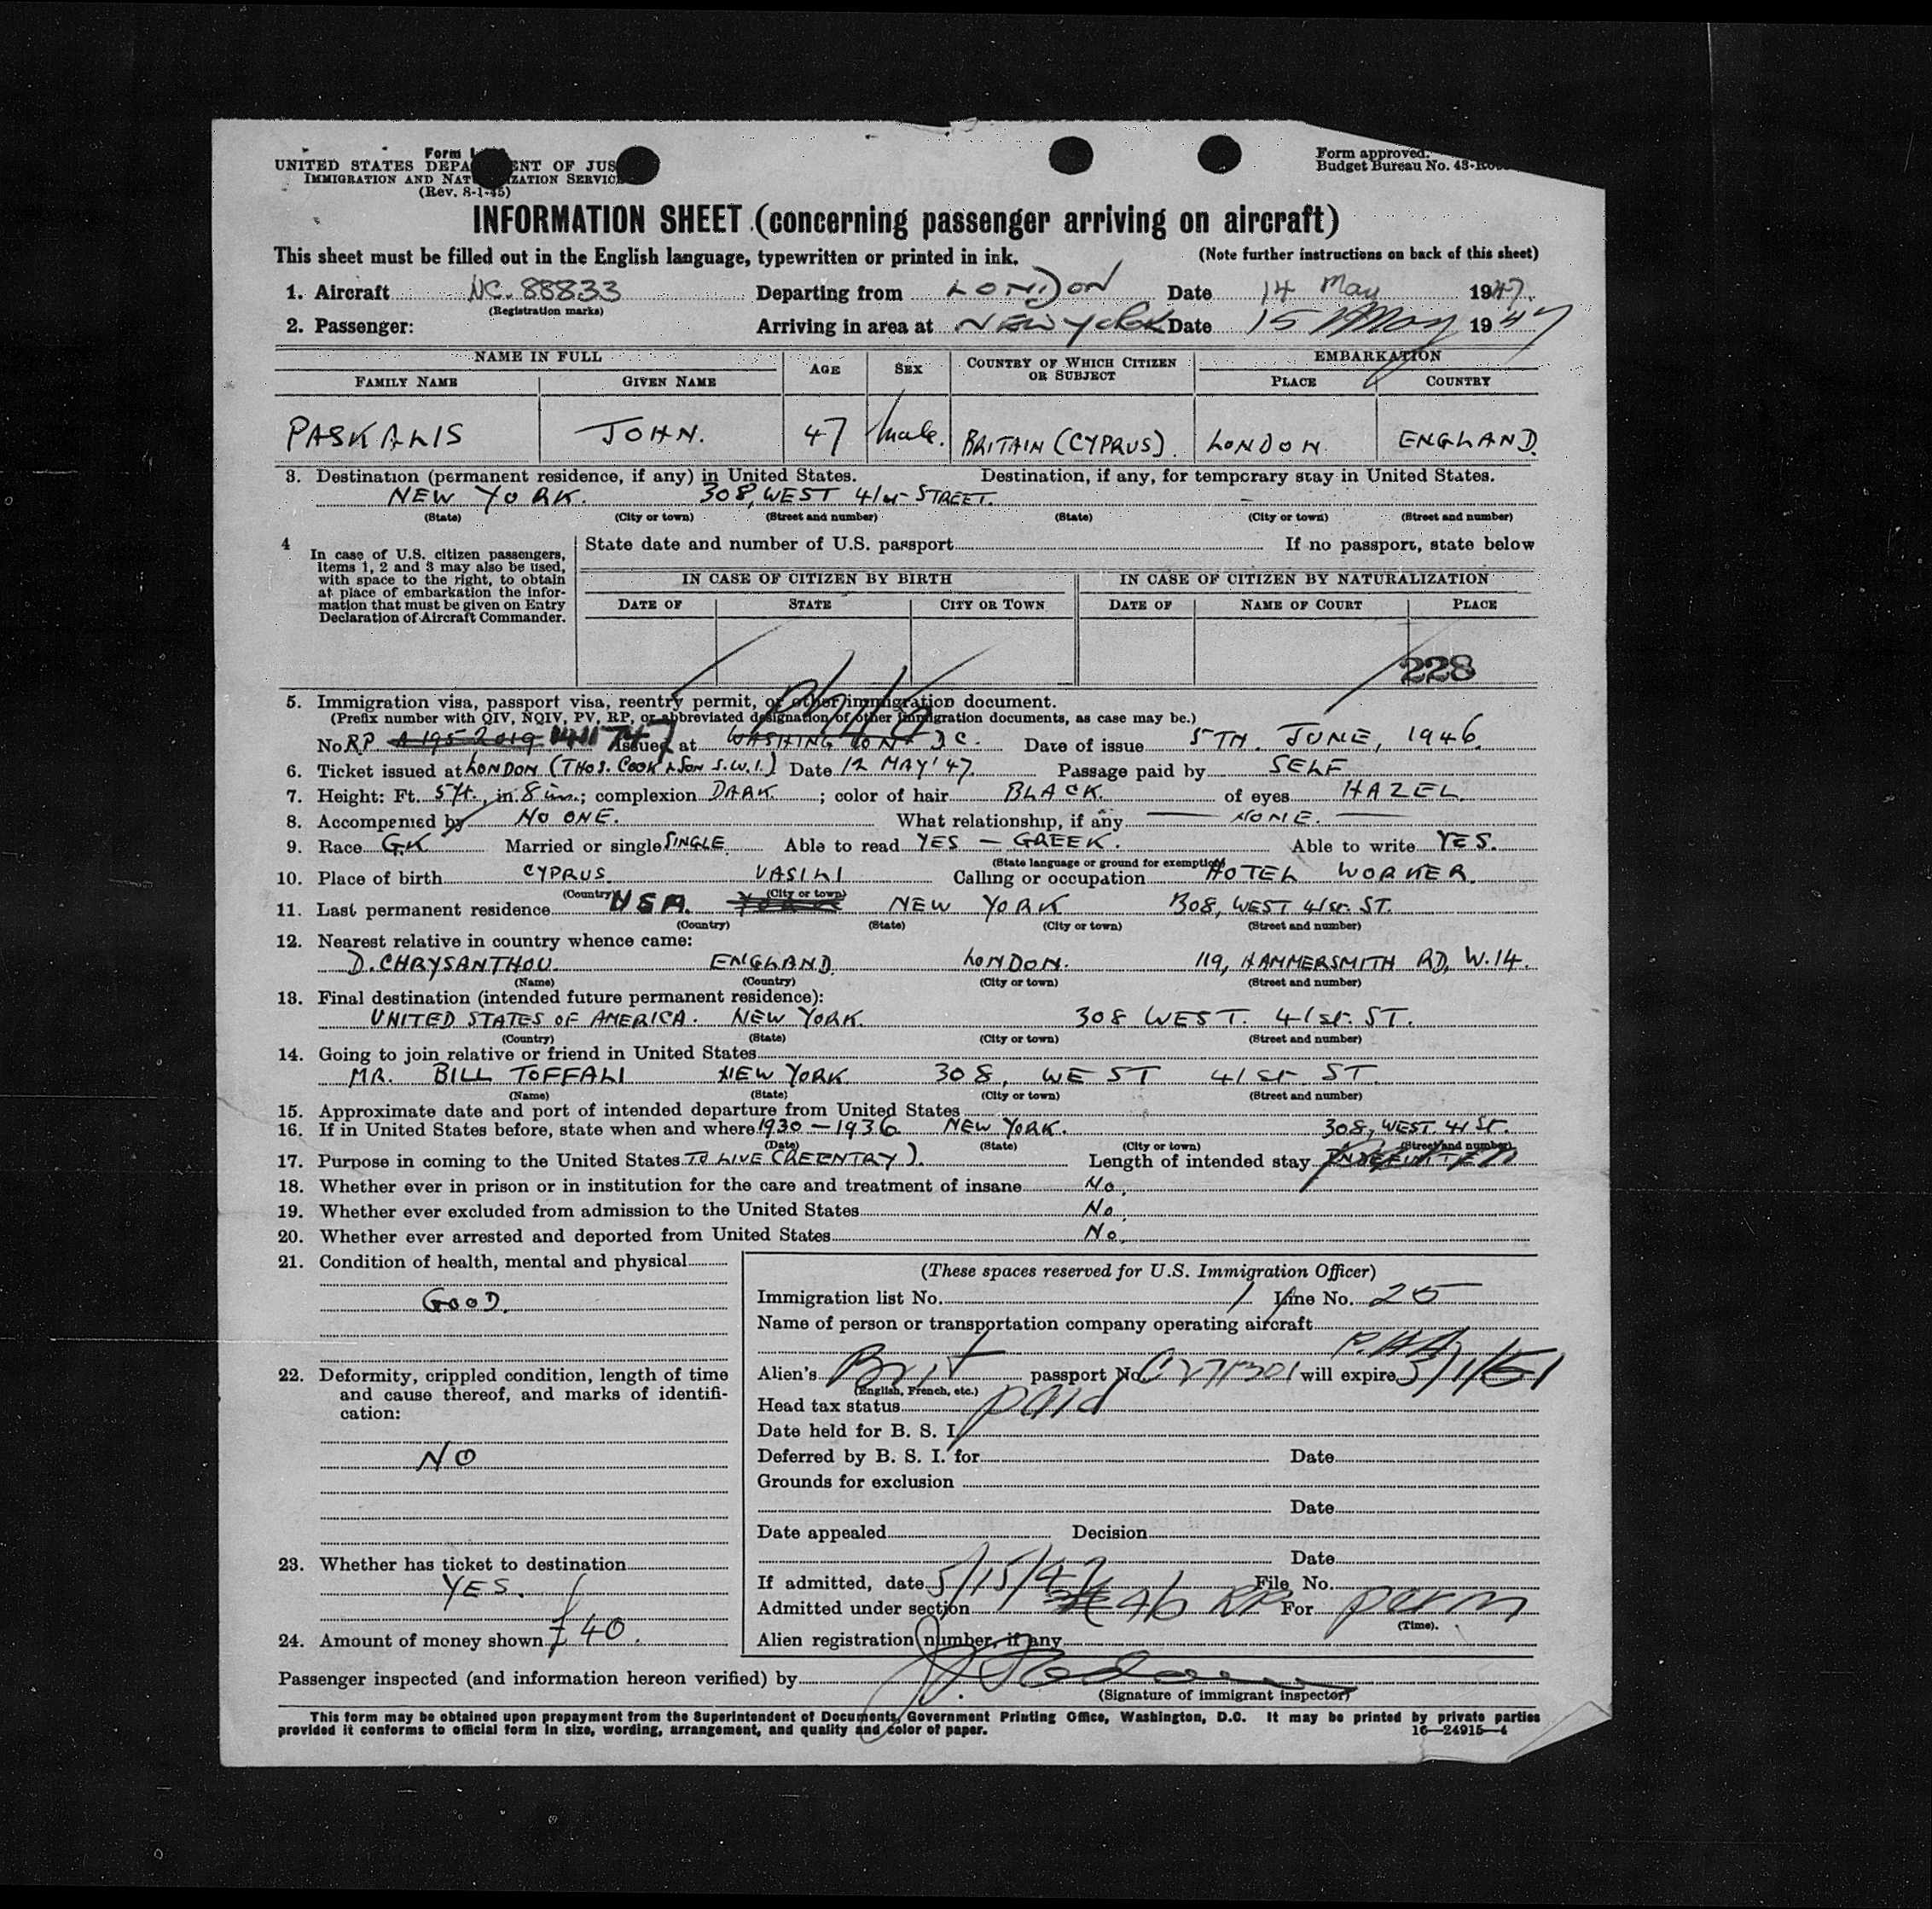 Form
UNITED STATES DEPA ENT OF JUS
IMMIGRATION AND NAT IZATION SERVIC
(Rev. 8-1-45)
Form approved.
Budget Bureau No. 43-
INFORMATION SHEET (concerning passenger arriving on aircraft)
This sheet must be filled out in the English language, typewritten or printed in ink. (Note further instructions on back of this sheet)
1. Aircraft NC. 88833 Departing from LONDON Date 14 May 1947
(Registration marks)
2. Passenger: Arriving in area at NEW YORK Date 15 May 1947
NAME IN FULL AGE SEX COUNTRY OF WHICH CITIZEN OR SUBJECT EMBARKATION
FAMILY NAME GIVEN NAME PLACE COUNTRY
PASKALIS JOHN. 47 Male. BRITAIN (CYPRUS). LONDON. ENGLAND.
3. Destination (permanent residence, if any) in United States. Destination, if any, for temporary stay in United States.
NEW YORK. 308, WEST 41st STREET.
(State) (City or town) (Street and number) (State) (City or town) (Street and number)
4 In case of U.S. citizen passengers, Items 1, 2 and 3 may also be used, with space to the right, to obtain at place of embarkation the information that must be given on Entry Declaration of Aircraft Commander.
State date and number of U.S. passport If no passport, state below
IN CASE OF CITIZEN BY BIRTH IN CASE OF CITIZEN BY NATURALIZATION
DATE OF STATE CITY OR TOWN DATE OF NAME OF COURT PLACE
228
5. Immigration visa, passport visa, reentry permit, or other immigration document.
(Prefix number with QIV, NQIV, PV, RP, or abbreviated designation of other immigration documents, as case may be.)
No RP A 195 2019 Issued at WASHINGTON D C. Date of issue 5TH. JUNE, 1946.
6. Ticket issued at LONDON (THOS. COOK & SON S.W.1.) Date 12 MAY '47. Passage paid by SELF
7. Height: Ft. 5 ft., in. 8 in.; complexion DARK.; color of hair BLACK. of eyes HAZEL.
8. Accompanied by NO ONE. What relationship, if any NONE.
9. Race GK Married or single SINGLE Able to read YES - GREEK. Able to write YES.
(State language or ground for exemption)
10. Place of birth CYPRUS VASILI Calling or occupation HOTEL WORKER.
(Country) (City or town)
11. Last permanent residence USA. NEW YORK 308, WEST 41st. ST.
(Country) (State) (City or town) (Street and number)
12. Nearest relative in country whence came:
D. CHRYSANTHOU. ENGLAND LONDON. 119, HAMMERSMITH RD, W.14.
(Name) (Country) (City or town) (Street and number)
13. Final destination (intended future permanent residence):
UNITED STATES OF AMERICA. NEW YORK. 308 WEST. 41st. ST.
(Country) (State) (City or town) (Street and number)
14. Going to join relative or friend in United States
MR. BILL TOFFALI NEW YORK 308, WEST 41st. ST.
(Name) (State) (City or town) (Street and number)
15. Approximate date and port of intended departure from United States
16. If in United States before, state when and where 1930 - 1936 NEW YORK. 308, WEST. 41 St.
(Date) (State) (City or town) (Street and number)
17. Purpose in coming to the United States TO LIVE (REENTRY). Length of intended stay
18. Whether ever in prison or in institution for the care and treatment of insane No.
19. Whether ever excluded from admission to the United States No.
20. Whether ever arrested and deported from United States No.
21. Condition of health, mental and physical
GOOD.
22. Deformity, crippled condition, length of time and cause thereof, and marks of identification:
NO
23. Whether has ticket to destination
YES.
24. Amount of money shown £ 40.
(These spaces reserved for U.S. Immigration Officer)
Immigration list No. 1 Line No. 25
Name of person or transportation company operating aircraft
P.AA
Alien's Brit passport No. will expire 3/1/51
(English, French, etc.)
Head tax status paid
Date held for B. S. I.
Deferred by B. S. I. for Date
Grounds for exclusion
Date
Date appealed Decision
Date
If admitted, date 5/15/47 File No.
Admitted under section 4b RP For perm
(Time).
Alien registration number, if any
Passenger inspected (and information hereon verified) by
(Signature of immigrant inspector)
This form may be obtained upon prepayment from the Superintendent of Documents, Government Printing Office, Washington, D.C. It may be printed by private parties
provided it conforms to official form in size, wording, arrangement, and quality and color of paper. 16—24915-4